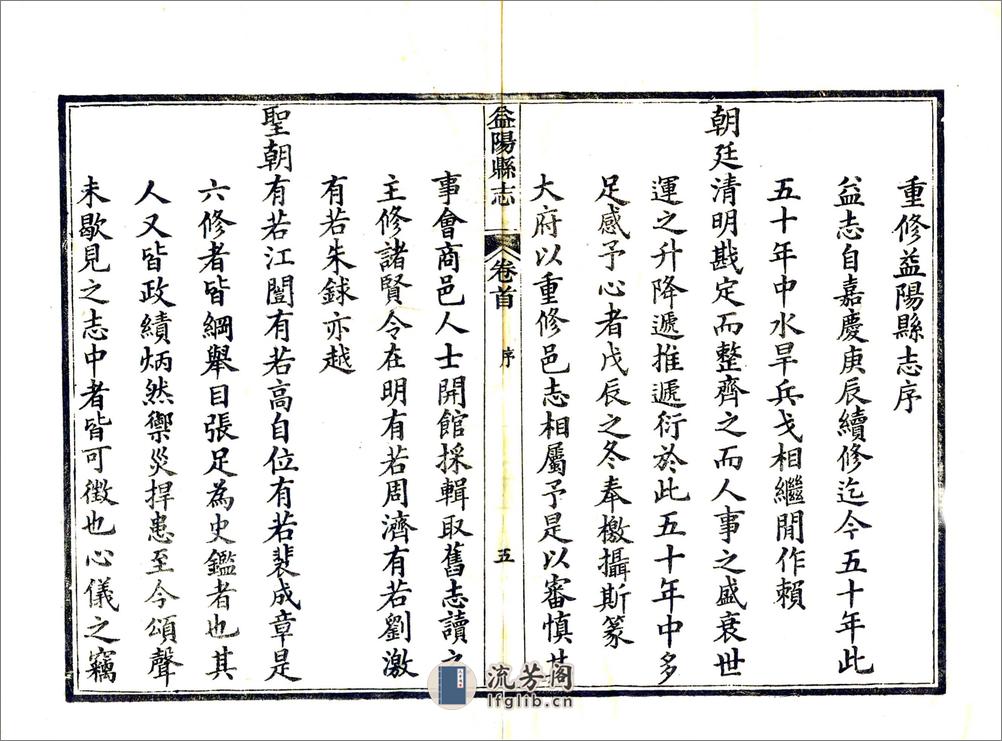 重修益陽縣志序
益志自嘉慶庚辰續修迄今五十年此
五十年中水旱兵戈相繼閒作賴
朝廷清明戡定而整齊之而人事之盛衰世
運之升降遞推遞衍於此五十年中多
足感予心者戊辰之冬奉檄攝斯篆
大府以重修邑志相屬予是以審慎其
益陽縣志
卷首
序
五
事會商邑人士開館採輯取舊志讀之
主修諸賢令在明有若周濟有若劉激
有若朱銶亦越
聖朝有若江闓有若高自位有若裴成章是
六修者皆綱舉目張足為史鑑者也其
人又皆政績炳然禦災捍患至今頌聲
未歇見之志中者皆可徵也心儀之竊
流芳阁
lfglib.cn